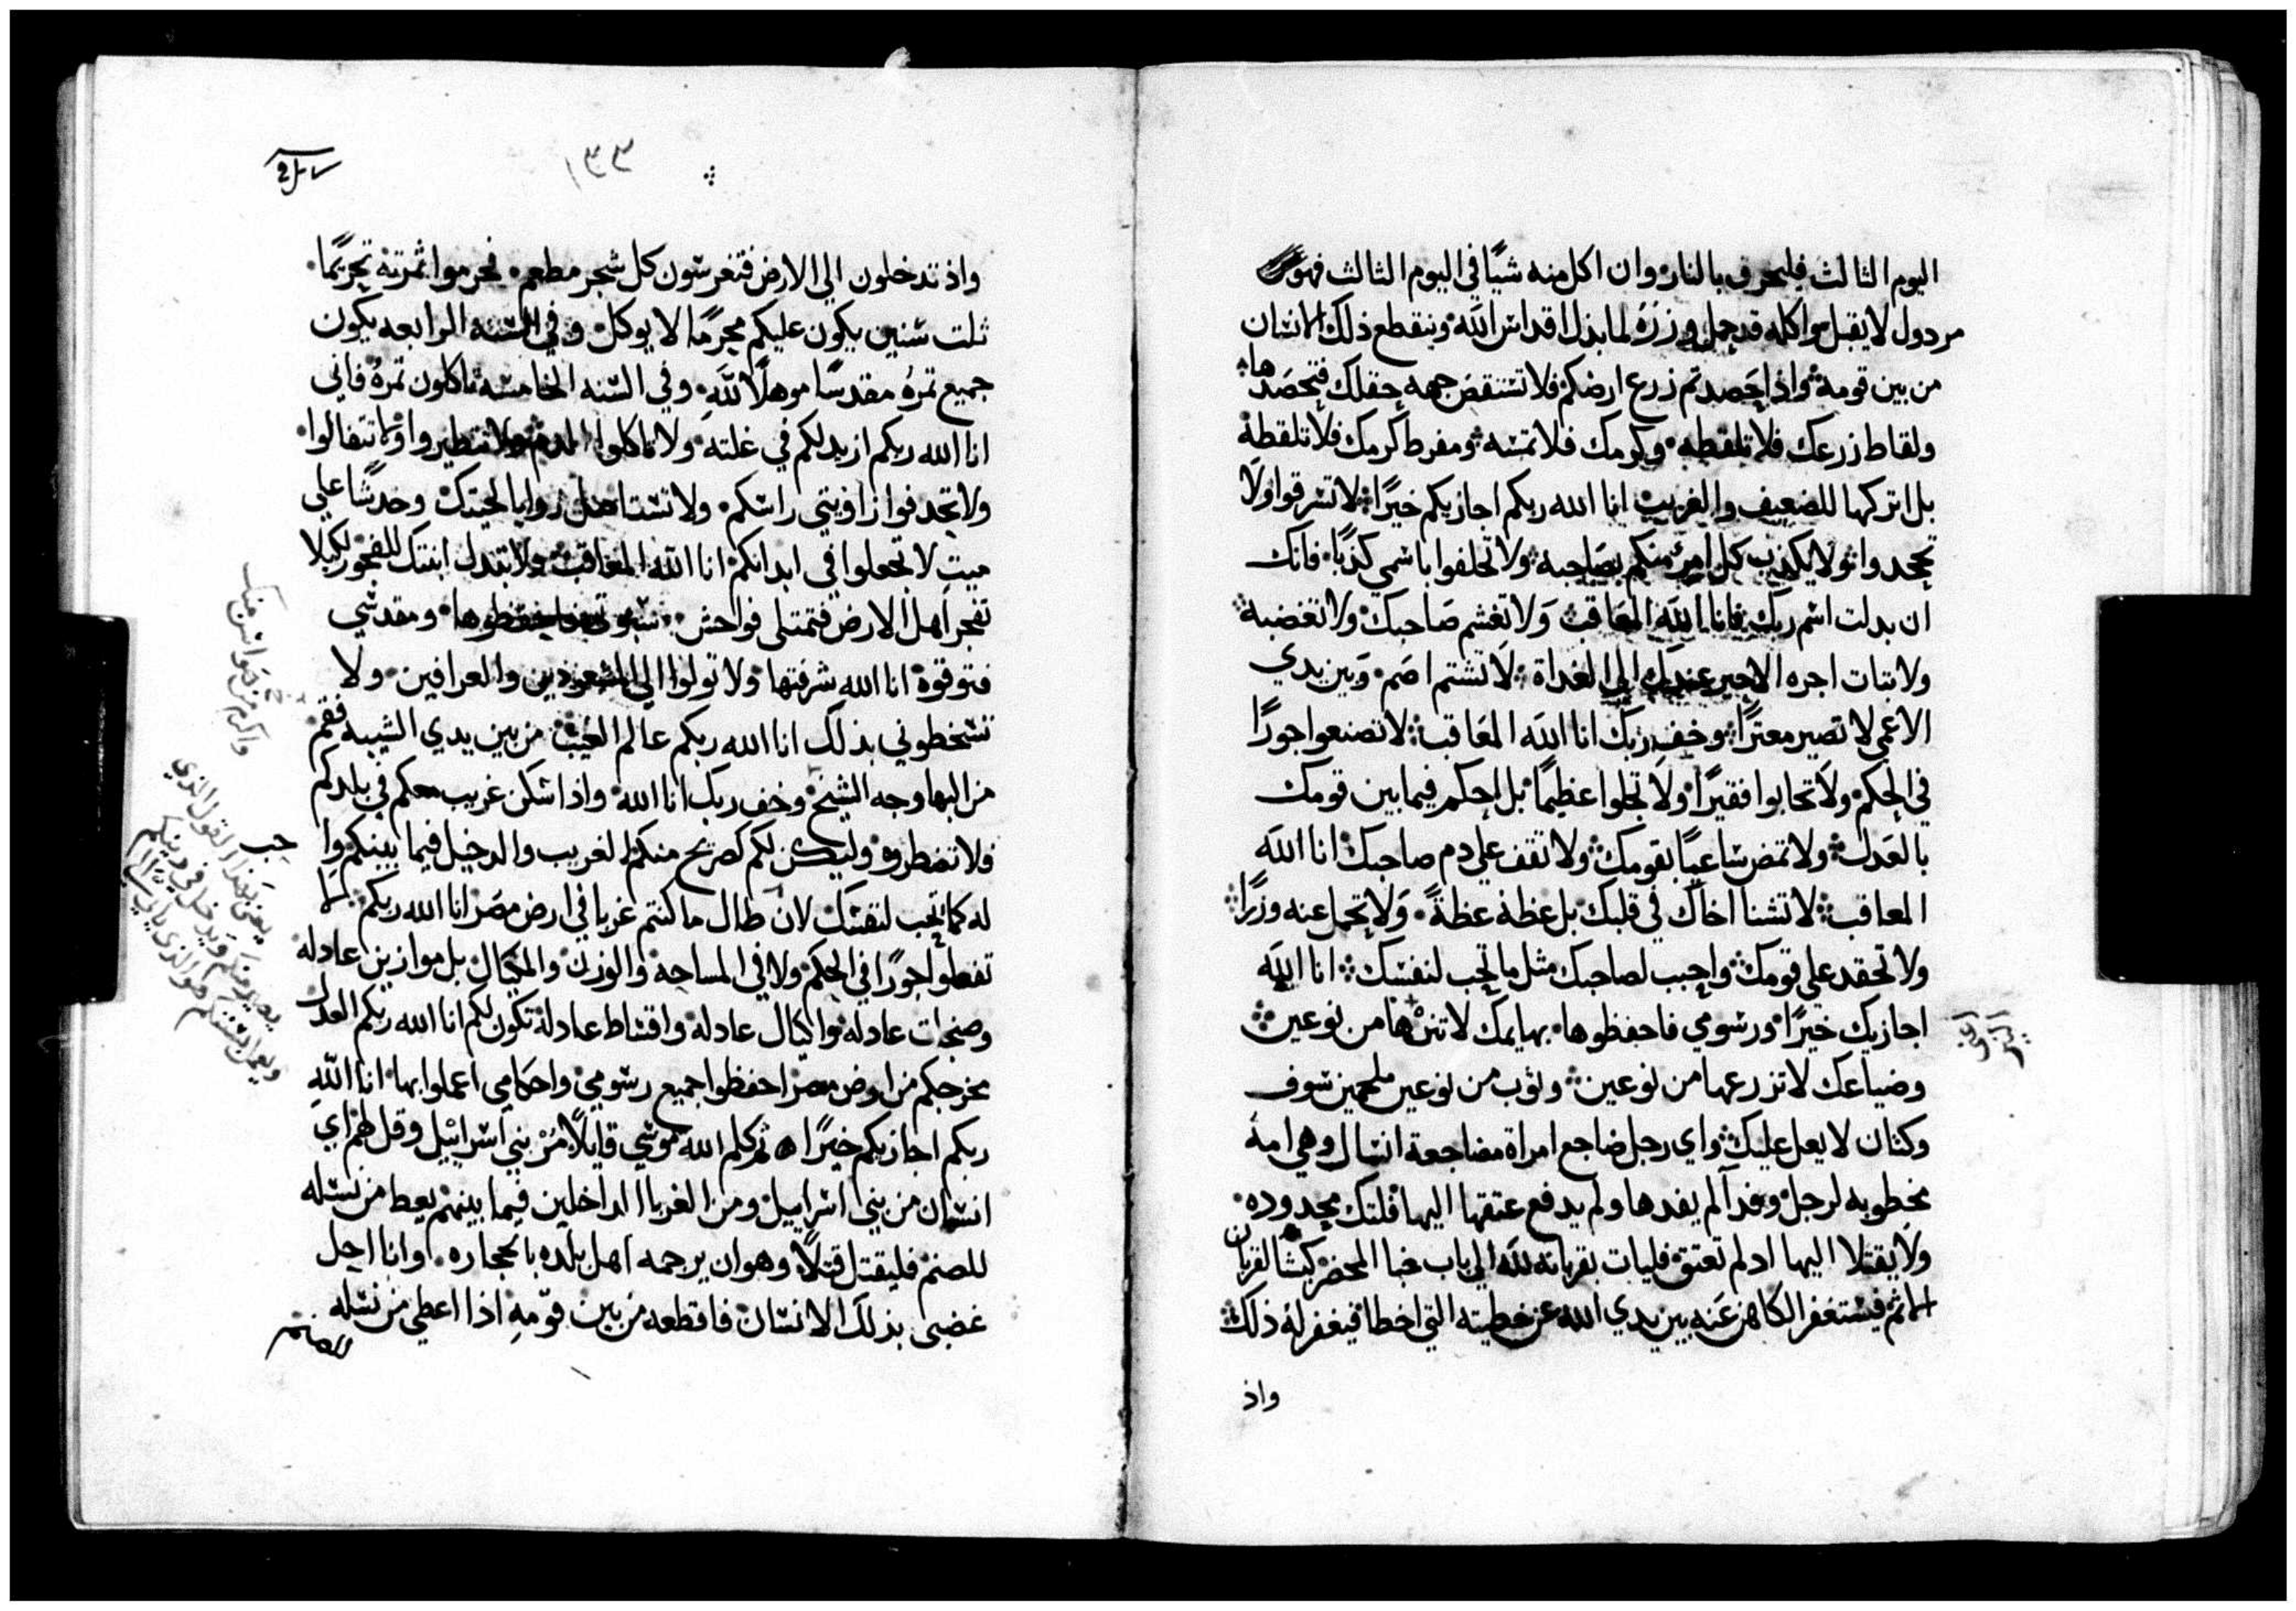 اليوم الثالث فليحرق بالنار وان اكل منه شيًا في اليوم الثالث فهو
مردول لا يقبل واكله قد حمل وزره لما بذل اقداس الله وينقطع ذلك الانسان
من بين قومه واذا حصدتم زرع ارضكم فلا تستنقص جهه حقلك فتحصدها
ولقاط زرعك فلا تلقطه وكرمك فلا تمته ومفرط كرمك فلا تلقطه
بل اتركها للضعيف والغريب انا الله ربكم اجازيكم خيرًا لا تسرقوا ولا
تجحدوا ولا يكذب كل امرء منكم بصاحبه ولا تحلفوا باسمي كذبًا فانك
ان بدلت اسم ربك فانا الله المعاقب ولا تغشم صاحبك ولا تغضبه
ولا تبات اجره الاجير عندك الي الغداة لا تشتم اصم وبين يدي
الاعمي لا تصير معترًا وخف ربك انا الله المعاقب لا تصنعوا جورًا
في الحكم ولا تحابوا فقيرًا ولا تجلوا عظيمًا بل احكم فيما بين قومك
بالعدل ولا تمض ساعيًا بقومك ولا تقف علي دم صاحبك انا الله
المعاقب لا تشنا اخاك في قلبك بل عظه عظةً ولا تحمل عنه وزرًا
ولا تحقد علي قومك واحبب لصاحبك مثل ما تحب لنفسك انا الله
اجازيك خيرًا ورسومي فاحفظوها بهايمك لا تنزها من نوعين
وضياعك لا تزرعها من نوعين وثوب من نوعين ملحمين صوف
وكتان لا يعل عليك واي رجل ضاجع امراة مضاجعة انسال وهي امه
مخطوبه لرجل وفدآ لم يفدها ولم يدفع عتقها اليها فلتك مجدوده
ولا يقتلا اليها اد لم تعتق فليات بقربانه لله الي باب خبا المحضر كبشًا لقربان
الاثم فيستغفر الكاهن عنه بين يدي الله عن خطيته التي اخطا فيغفر له ذلك
واذ
١٣٣
واذ تدخلون الي الارض فتغرسون كل شجر مطعم فحرموا ثمرته تحريمًا
ثلت سنين يكون عليكم محرمًا لا يوكل وفي السنه الرابعه يكون
جميع ثمره مقدسًا موهلًا لله وفي السنه الخامسه تاكلون ثمره فاني
انا الله ربكم ازيد لكم في غلته ولا تاكلوا الدم ولا تتطيروا ولا تتفالوا
ولا تحدفوا زاويتي راسكم ولا تستاصل زوايا لحيتك وخدشًا علي
ميت لا تجعلوا في ابدانكم انا الله المعاقب ولا تبدل ابنتك للفجور لكيلا
تفجر اهل الارض فتمتلي فواحش سبوتي فاحفظوها ومقدسي
فتوقوه انا الله شرفتها ولا تولوا الي المشعوذين والعرافين ولا
تسخطوني بذلك انا الله ربكم عالم الغيب من بين يدي الشيبه فقم
من البها وجه الشيخ وخف ربك انا الله واذا سكن غريب معكم في بلدكم
فلا تضطروه وليكن لكم كصريح منكم الغريب والدخيل فيما بينكم وا حب
له كما تحب لنفسك لان طال ما كنتم غربا في ارض مصر انا الله ربكم لا
تفعلوا جورًا في الحكم ولا في المساحه والوزن والمكيال بل موازين عادله
وصنجات عادله واكيال عادله واقساط عادله تكون لكم انا الله ربكم العدل
مخرجكم من ارض مصر احفظوا جميع رسومي واحكامي اعملوا بها انا الله
ربكم اجازيكم خيرًا ثم كلم الله موسي قايلًا مُرْ بني اسراييل وقل لهم اي
انسان من بني اسراييل ومن الغربا الداخلين فيما بينهم يعط من نسله
للصنم فليقتل قتلًا وهو ان يرجمه اهل بلده بالحجاره وانا احل
غضبي بذلك الانسان فاقطعه من بين قومه اذا اعطي من نسله
للصنم